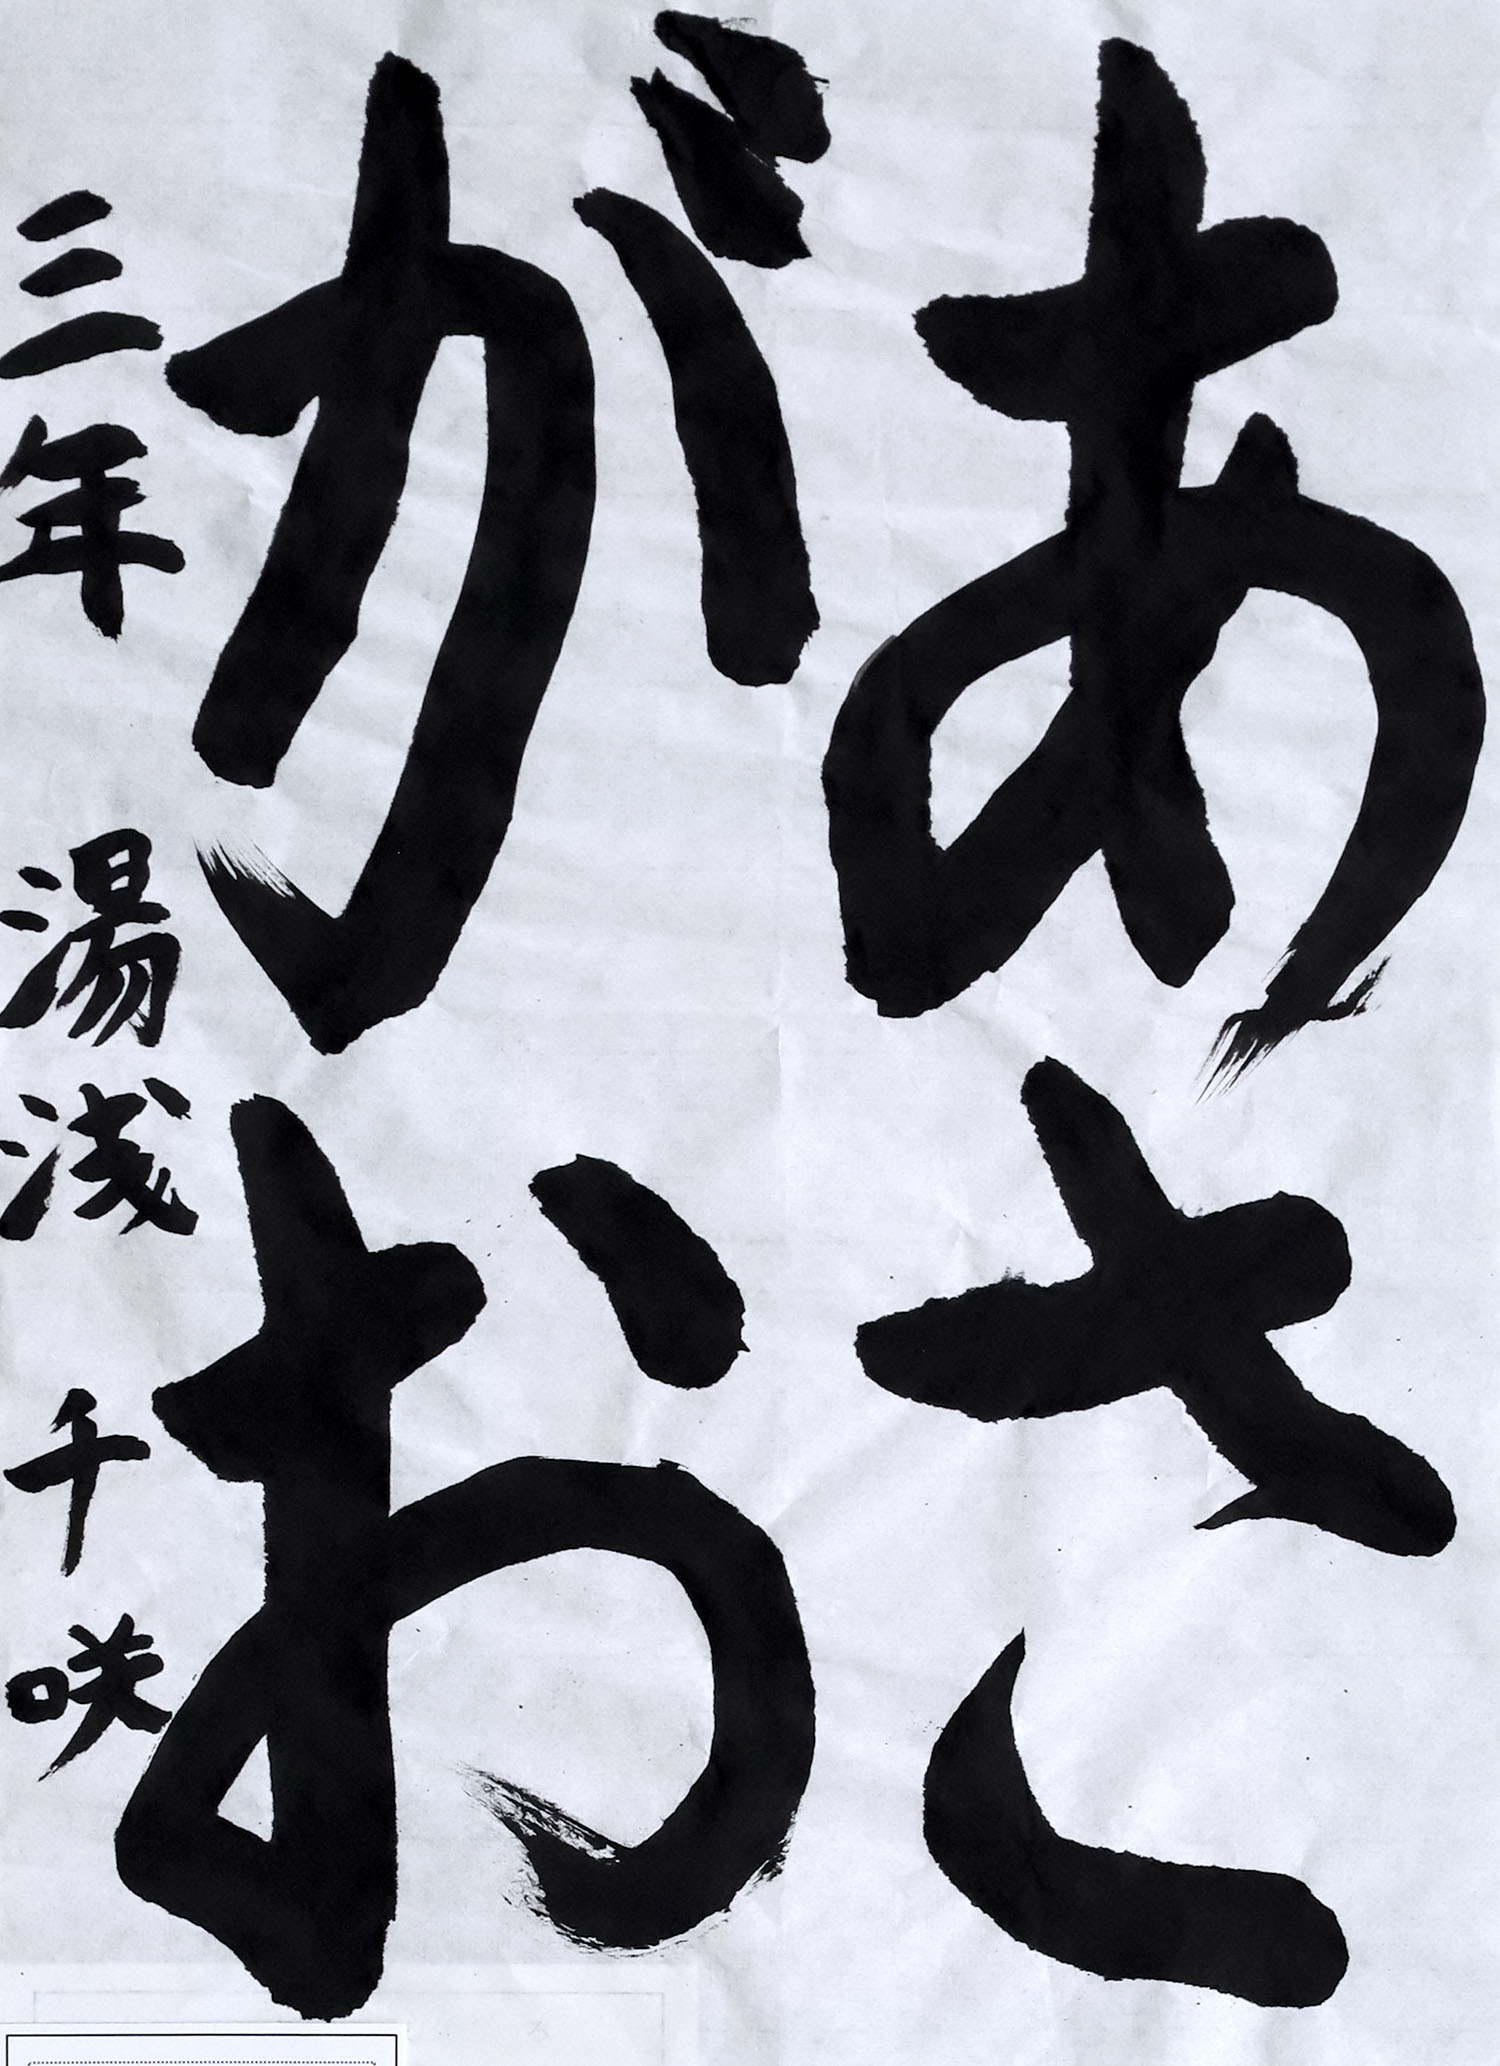 あさ
がお
三年 湯浅 千咲